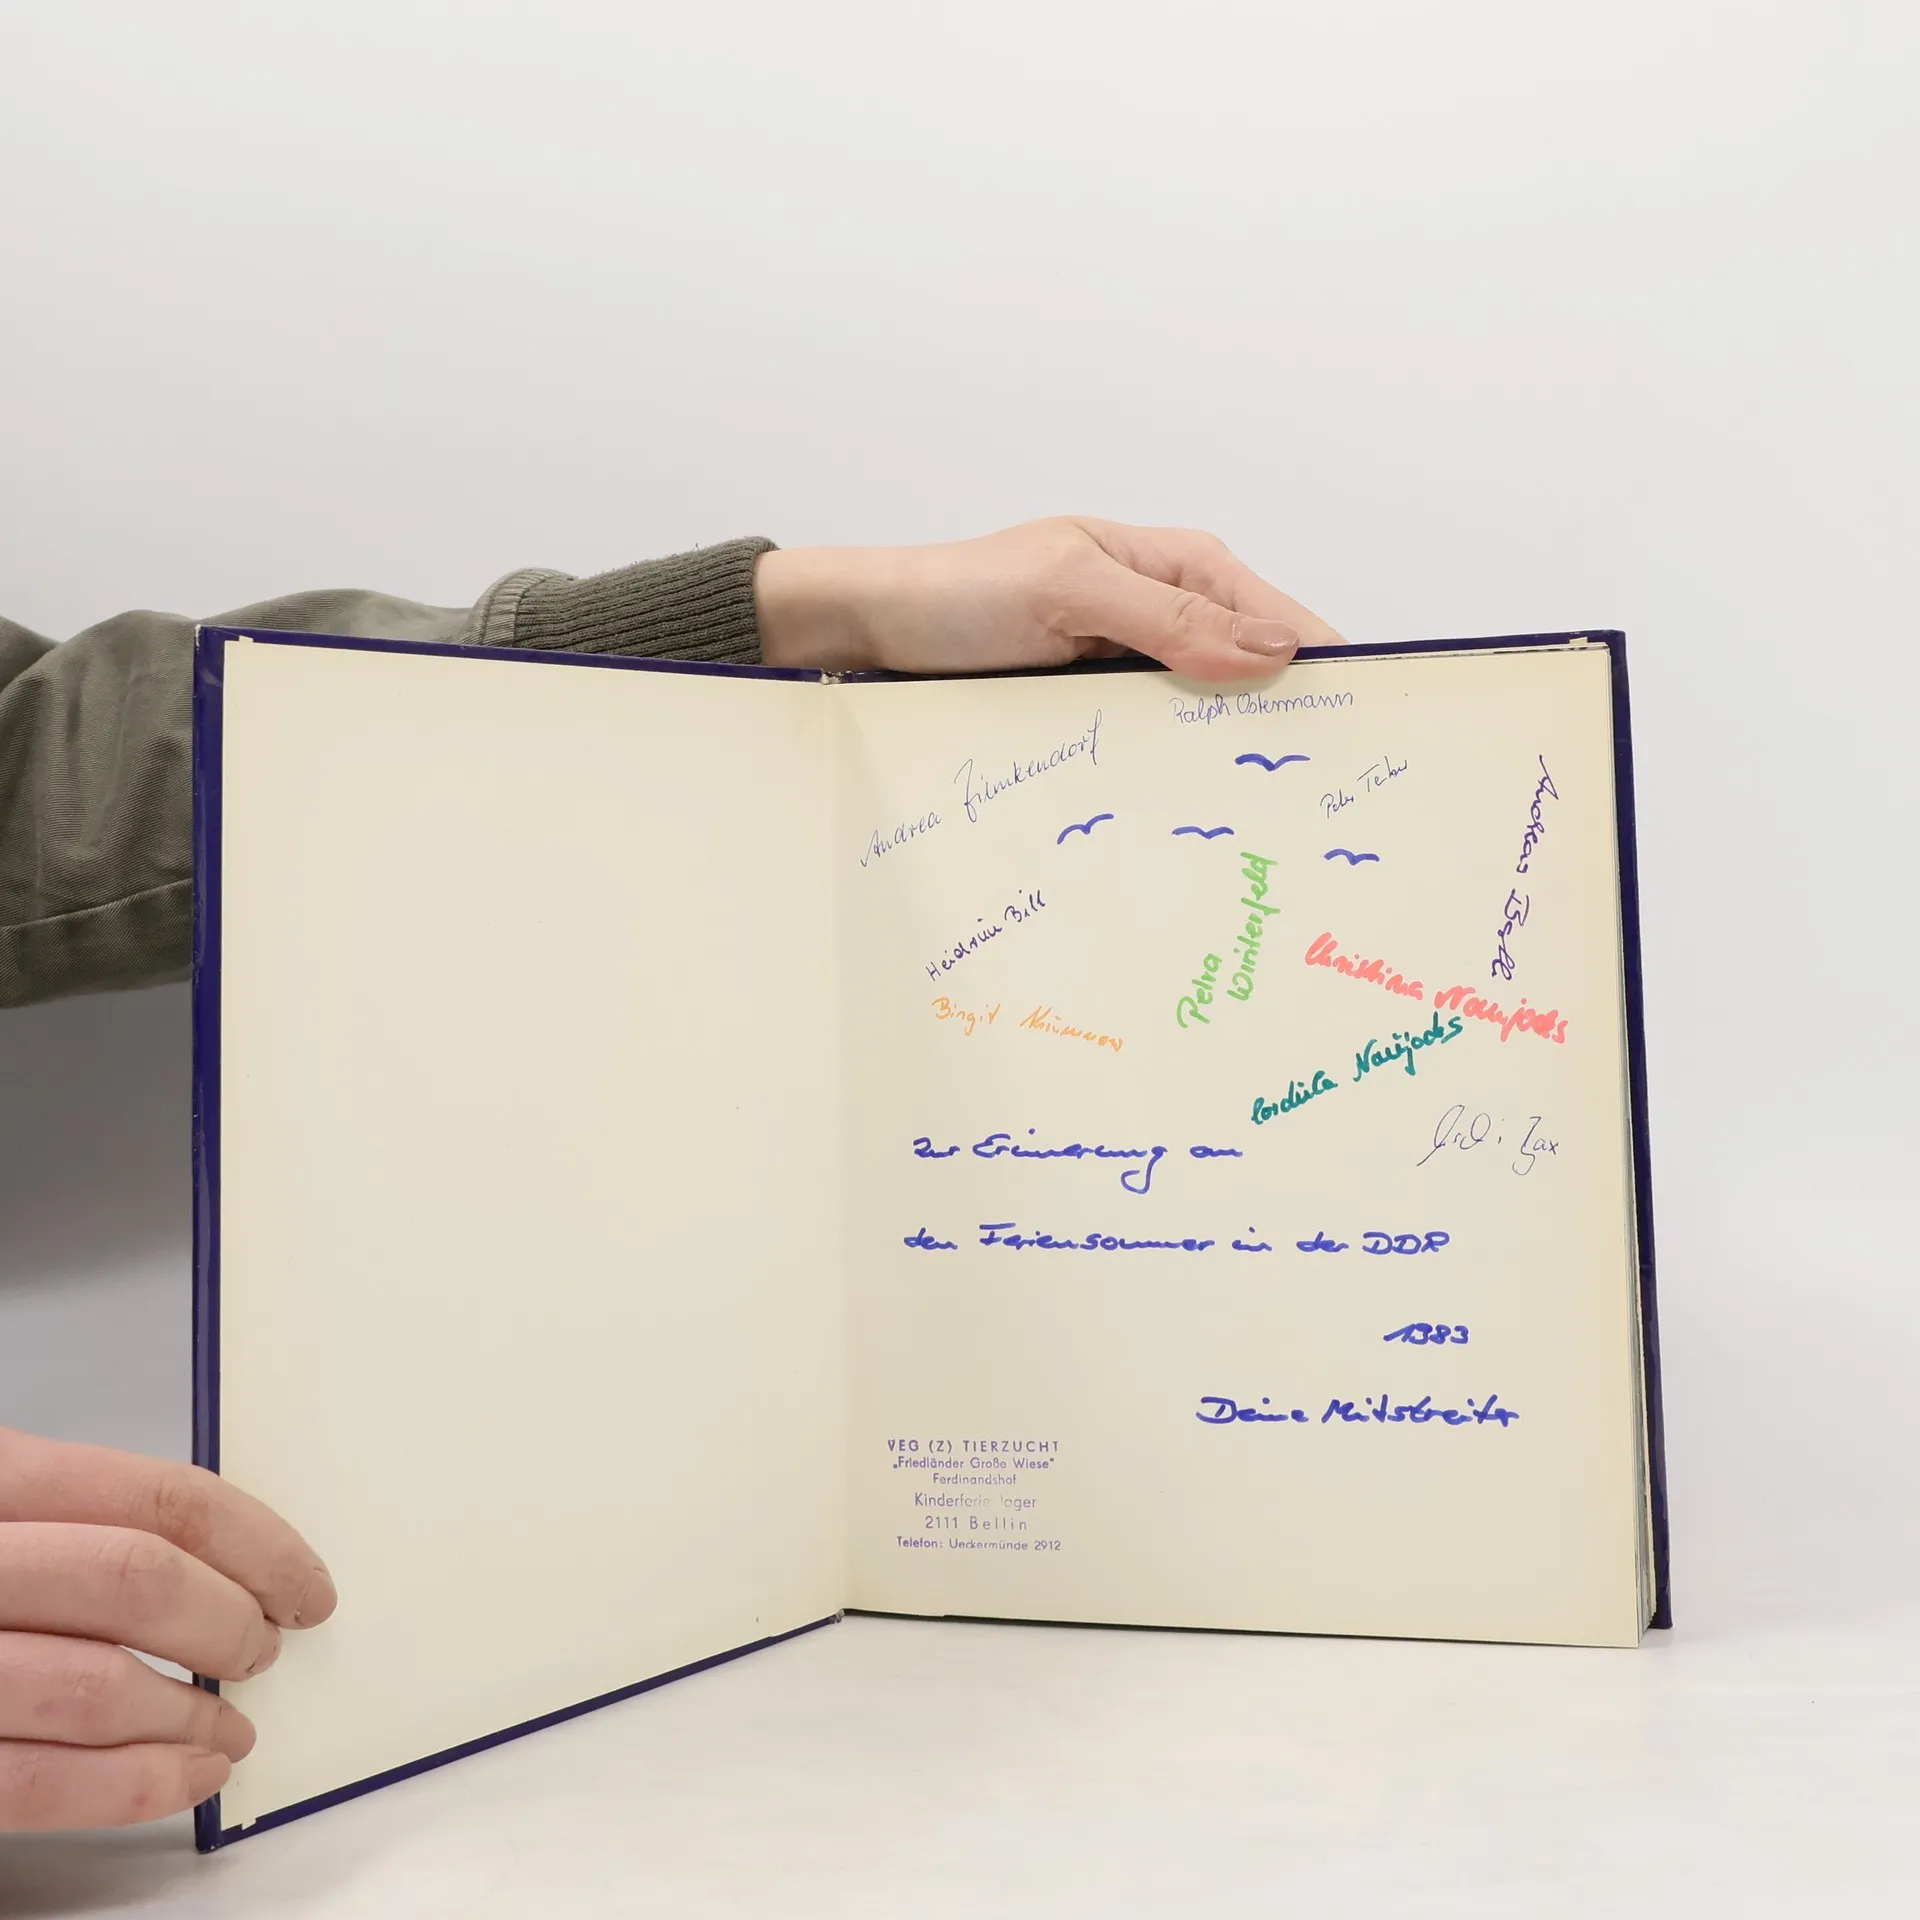 Ralph Ostermann
Andrea Zimkendorf
Peter
Andreas
Heidrun Bill
Petra
Winterfeld
Birgit
Christina Naujocks
Cordula Naujocks
Zax
Zur Erinnerung an
den Feriensommer in der DDR
1983
Deine Mitstreiter
VEG (Z) TIERZUCHT
„Friedländer Große Wiese"
Ferdinandshof
Kinderferienlager
2111 Bellin
Telefon: Ueckermünde 2912